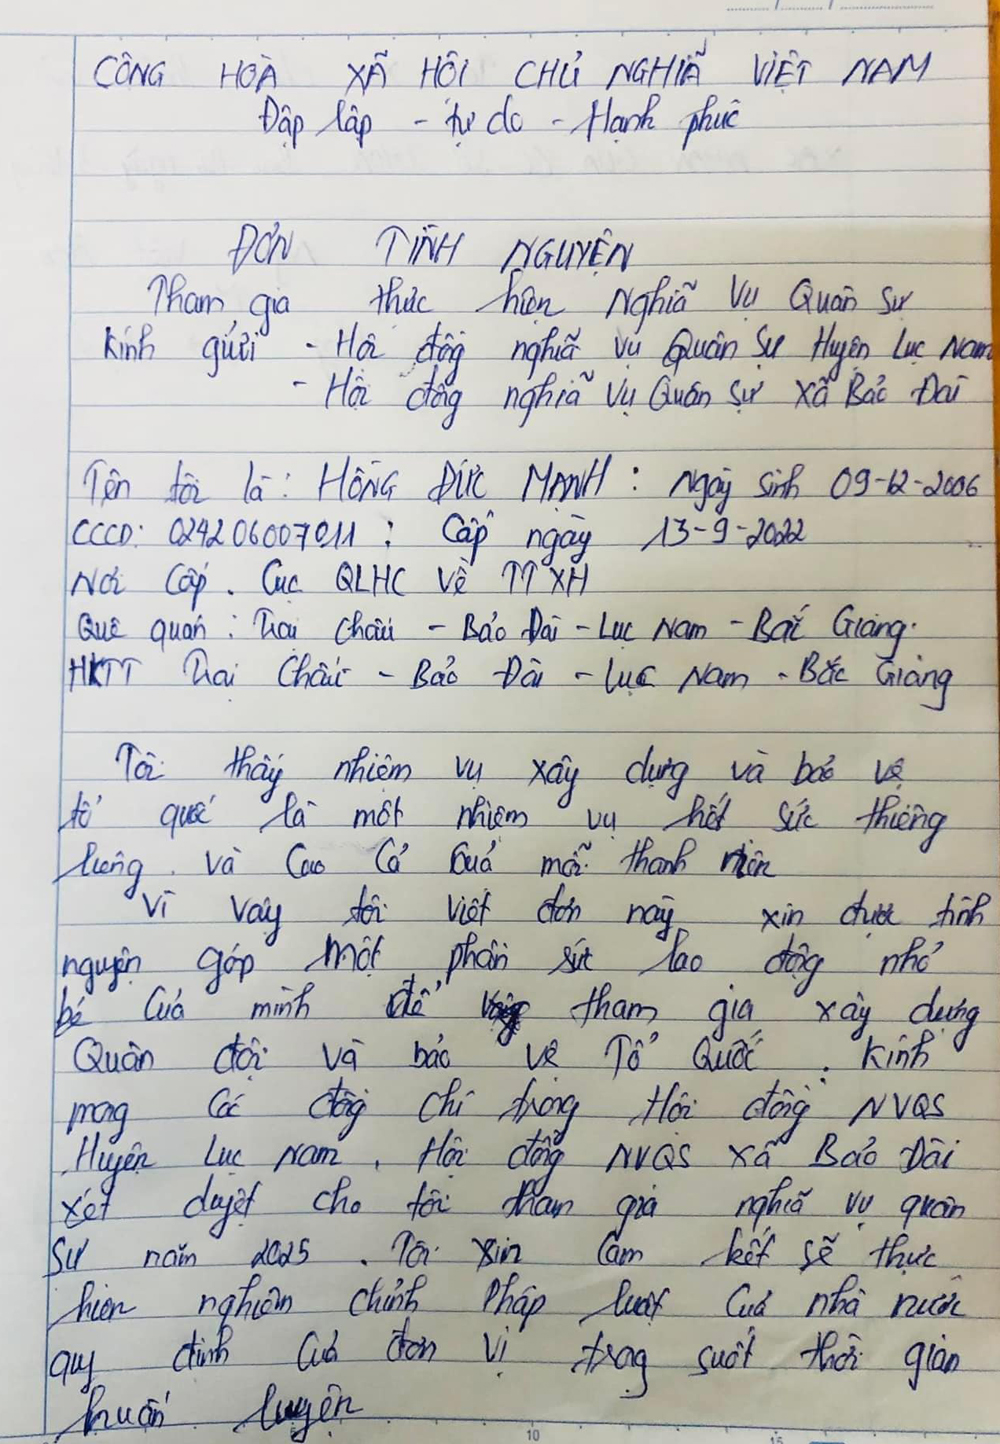 CÔNG HOÀ XÃ HÔI CHỦ NGHIÃ VIỆT NAM
Đập lập - tự do - Hạnh phúc
ĐƠN TÌNH NGUYỆN
Tham gia thực hiện Nghiã Vụ Quân sự
kính gửi - Hội đồng nghiã vụ Quân sự Huyện Lục Nam
- Hội đồng nghiã Vụ Quân sự xã Bảo Đài
Tên tôi là: HỒNG ĐỨC MẠNH: Ngày sinh 09-12-2006
CCCD: 024206007011; Cấp ngày 13-9-2022
Nơi Cấp. Cục QLHC Về TTXH
Quê quán: Trại Chấu - Bảo Đài - Lục Nam - Bắc Giang.
HKTT Trại Chấu - Bảo Đài - Lục Nam - Bắc Giang
Tôi thấy nhiệm vụ xây dựng và bảo vệ
tổ quốc là một nhiệm vụ hết sức thiêng
liêng. và Cao Cả Của mỗi thanh niên
Vì vậy tôi viết đơn này xin được tình
nguyện góp một phần sức lao động nhỏ
bé Của mình để tham gia xây dựng
Quân đội và bảo vệ Tổ Quốc. Kính
mong Các đồng chí trong Hội đồng NVQS
Huyện Lục Nam, Hội đồng NVQS xã Bảo Đài
xét duyệt cho tôi tham gia nghiã vụ quân
sự năm 2025. Tôi xin Cam kết sẽ thực
hiện nghiêm chỉnh Pháp luật Của nhà nước
quy định Của đơn vị trong suốt thời gian
huấn luyện
10
15